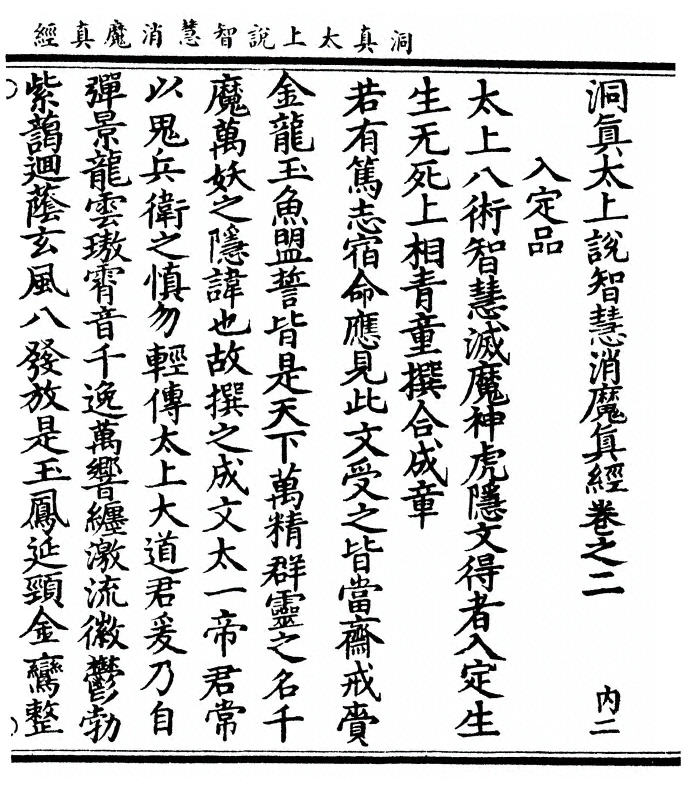 洞真太上說智慧消魔真經
洞眞太上說智慧消魔眞經卷之二
内二
入定品
太上八術智慧滅魔神虎隱文得者入定生
生无死上相青童撰合成章
若有篤志宿命應見此文受之皆當齋戒賷
金龍玉魚盟誓皆是天下萬精群靈之名千
魔萬妖之隱諱也故撰之成文太一帝君常
以鬼兵衛之慎勿輕傳太上大道君爰乃自
彈景龍雲璈霄音千逸萬響纏激流徽鬱勃
紫藹迴蔭玄風八發放是玉鳳延頸金鸞整